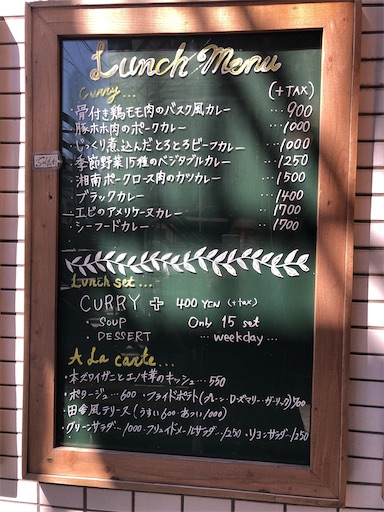 Lunch Menu
Curry... (+TAX)
・骨付き鶏モモ肉のバスク風カレー ...900
・豚ホホ肉のポークカレー ...1000
・じっくり煮込んだとろとろビーフカレー ...1000
・季節野菜15種のベジタブルカレー ...1250
・湘南ポークロース肉のカツカレー ...1500
・ブラックカレー ...1400
・エビのアメリケーヌカレー ...1700
・シーフードカレー ...1700
Lunch set...
CURRY + 400 YEN (+tax)
・SOUP Only 15 set
・DESSERT ...weekday...
A La carte...
・本ズワイガニとエノキ茸のキッシュ...550
・ポタージュ...600 ・フライドポテト(プレーン・ローズマリー・ガーリック)500
・田舎風テリーヌ(うすい600・あつい1000)
・グリーンサラダ...1000・フリュイドメールサラダ...1250・リヨンサラダ...1250